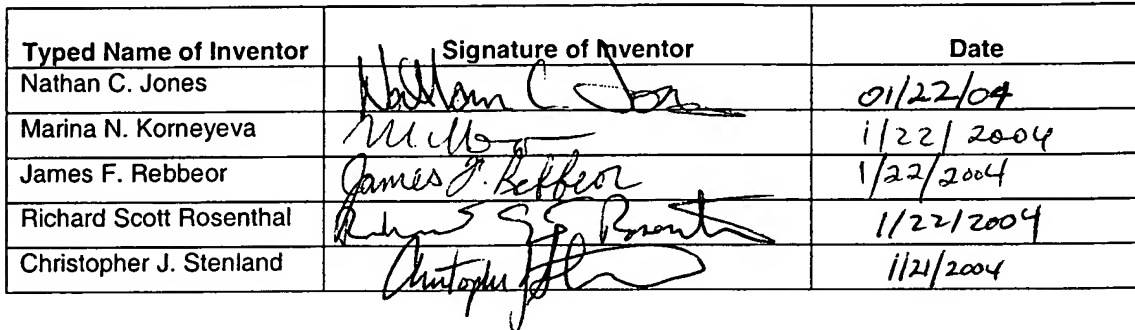 Typed Name of Inventor Signature of Inventor Date
Nathan C. Jones Nathan C. Jones 01/22/04
Marina N. Korneyeva 1/22/2004
James F. Rebbeor James F. Rebbeor 1/22/2004
Richard Scott Rosenthal 1/22/2004
Christopher J. Stenland Christopher J 1/21/2004